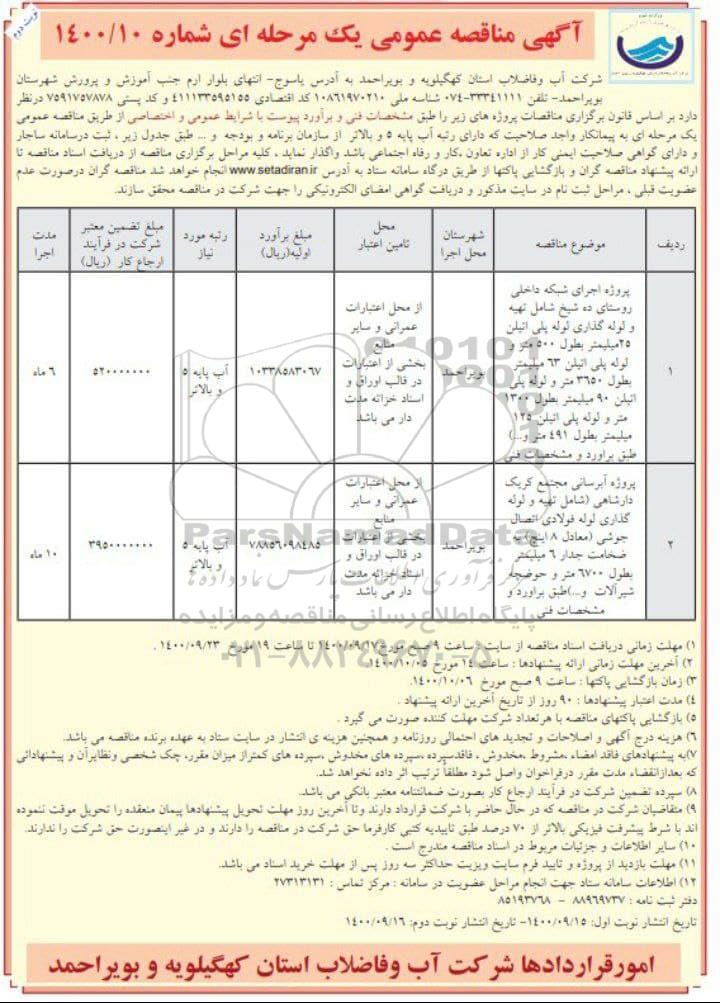 نوبت دوم
آگهی مناقصه عمومی یک مرحله ای شماره ۱۴۰۰/۱۰
شرکت آب وفاضلاب استان کهگیلویه و بویراحمد به آدرس یاسوج- انتهای بلوار ارم جنب آموزش و پرورش شهرستان
بویراحمد- تلفن ۳۳۳۴۱۱۱۱-۰۷۴ شناسه ملی ۱۰۸۶۱۹۷۰۲۱۰ کد اقتصادی ۴۱۱۱۳۳۵۹۵۱۵۵ و کد پستی ۷۵۹۱۷۵۷۸۷۸ درنظر
دارد بر اساس قانون برگزاری مناقصات پروژه های زیر را طبق مشخصات فنی و برآورد پیوست با شرایط عمومی و اختصاصی از طریق مناقصه عمومی
یک مرحله ای به پیمانکار واجد صلاحیت که دارای رتبه آب پایه ۵ و بالاتر از سازمان برنامه و بودجه و ... طبق جدول زیر ، ثبت درسامانه ساجار
و دارای گواهی صلاحیت ایمنی کار از اداره تعاون ،کار و رفاه اجتماعی باشد واگذار نماید ، کلیه مراحل برگزاری مناقصه از دریافت اسناد مناقصه تا
ارائه پیشنهاد مناقصه گران و بازگشایی پاکتها از طریق درگاه سامانه ستاد به آدرس www.setadiran.ir انجام خواهد شد مناقصه گران درصورت عدم
عضویت قبلی ، مراحل ثبت نام در سایت مذکور و دریافت گواهی امضای الکترونیکی را جهت شرکت در مناقصه محقق سازند.
ردیف
موضوع مناقصه
شهرستان
محل اجرا
محل
تامین اعتبار
مبلغ برآورد
اولیه(ریال)
رتبه مورد
نیاز
مبلغ تضمین معتبر
شرکت در فرآیند
ارجاع کار (ریال)
مدت
اجرا
۱
پروژه اجرای شبکه داخلی
روستای ده شیخ شامل تهیه
و لوله گذاری لوله پلی اتیلن
۲۵میلیمتر بطول ۵۰۰ متر و
لوله پلی اتیلن ۶۳ میلیمتر
بطول ۳۶۵۰ متر و لوله پلی
اتیلن ۹۰ میلیمتر بطول ۱۳۰۰
متر و لوله پلی اتیلن ۱۲۵
میلیمتر بطول ۴۹۱ متر و...)
طبق براورد و مشخصات فنی
بویراحمد
از محل اعتبارات
عمرانی و سایر
منابع
بخشی از اعتبارات
در قالب اوراق و
اسناد خزانه مدت
دار می باشد
۱۰۳۳۸۵۸۳۰۶۷
آب پایه ۵
و بالاتر
۵۲۰۰۰۰۰۰۰
۶ ماه
۲
پروژه آبرسانی مجتمع کریک
دارشاهی (شامل تهیه و لوله
گذاری لوله فولادی اتصال
جوشی (معادل ۸ اینچ) به
ضخامت جدار ۶ میلیمتر
بطول ۶۷۰۰ متر و حوضچه
شیرآلات و...)طبق براورد و
مشخصات فنی
بویراحمد
از محل اعتبارات
عمرانی و سایر
منابع
بخشی از اعتبارات
در قالب اوراق و
اسناد خزانه مدت
دار می باشد
۷۸۸۵۶۰۹۸۴۸۵
آب پایه ۵
و بالاتر
۳۹۵۰۰۰۰۰۰۰
۱۰ ماه
ParsNamadData
مرکز فرآوری اطلاعات پارس نماد داده ها
پایگاه اطلاع رسانی مناقصه و مزایده
۰۲۱-۸۸۳۴۹۶۷۰-۵
۱) مهلت زمانی دریافت اسناد مناقصه از سایت : ساعت ۹ صبح مورخ ۱۴۰۰/۰۹/۱۷ تا ساعت ۱۹ مورخ ۱۴۰۰/۰۹/۲۳ .
۲) آخرین مهلت زمانی ارائه پیشنهادها : ساعت ۱۴ مورخ ۱۴۰۰/۱۰/۰۵.
۳) زمان بازگشایی پاکتها : ساعت ۹ صبح مورخ ۱۴۰۰/۱۰/۰۶.
۴) مدت اعتبار پیشنهادها : ۹۰ روز از تاریخ آخرین ارائه پیشنهاد .
۵) بازگشایی پاکتهای مناقصه با هرتعداد شرکت مهلت کننده صورت می گیرد .
۶) هزینه درج آگهی و اصلاحات و تجدید های احتمالی روزنامه و همچنین هزینه ی انتشار در سایت ستاد به عهده برنده مناقصه می باشد.
۷)به پیشنهادهای فاقد امضاء ،مشروط ،مخدوش ، فاقدسپرده ،سپرده های مخدوش ،سپرده های کمتراز میزان مقرر، چک شخصی ونظایرآن و پیشنهاداتی
که بعدازانقضاء مدت مقرر درفراخوان واصل شود مطلقاً ترتیب اثر داده نخواهد شد.
۸) سپرده تضمین شرکت در فرآیند ارجاع کار بصورت ضمانتنامه معتبر بانکی می باشد.
۹) متقاضیان شرکت در مناقصه که در حال حاضر با شرکت قرارداد دارند وتا آخرین روز مهلت تحویل پیشنهادها پیمان منعقده را تحویل موقت ننموده
اند با شرط پیشرفت فیزیکی بالاتر از ۷۰ درصد طبق تاییدیه کتبی کارفرما حق شرکت در مناقصه را دارند و در غیر اینصورت حق شرکت را ندارند.
۱۰) سایر اطلاعات و جزئیات مربوط در اسناد مناقصه مندرج است .
۱۱) مهلت بازدید از پروژه و تایید فرم سایت ویزیت حداکثر سه روز پس از مهلت خرید اسناد می باشد.
۱۲) اطلاعات سامانه ستاد جهت انجام مراحل عضویت در سامانه : مرکز تماس : ۲۷۳۱۳۱۳۱
دفتر ثبت نامه : ۸۸۹۶۹۷۳۷ - ۸۵۱۹۳۷۶۸
تاریخ انتشار نوبت اول: ۱۴۰۰/۰۹/۱۵- تاریخ انتشار نوبت دوم: ۱۴۰۰/۰۹/۱۶
امورقراردادها شرکت آب وفاضلاب استان کهگیلویه و بویراحمد